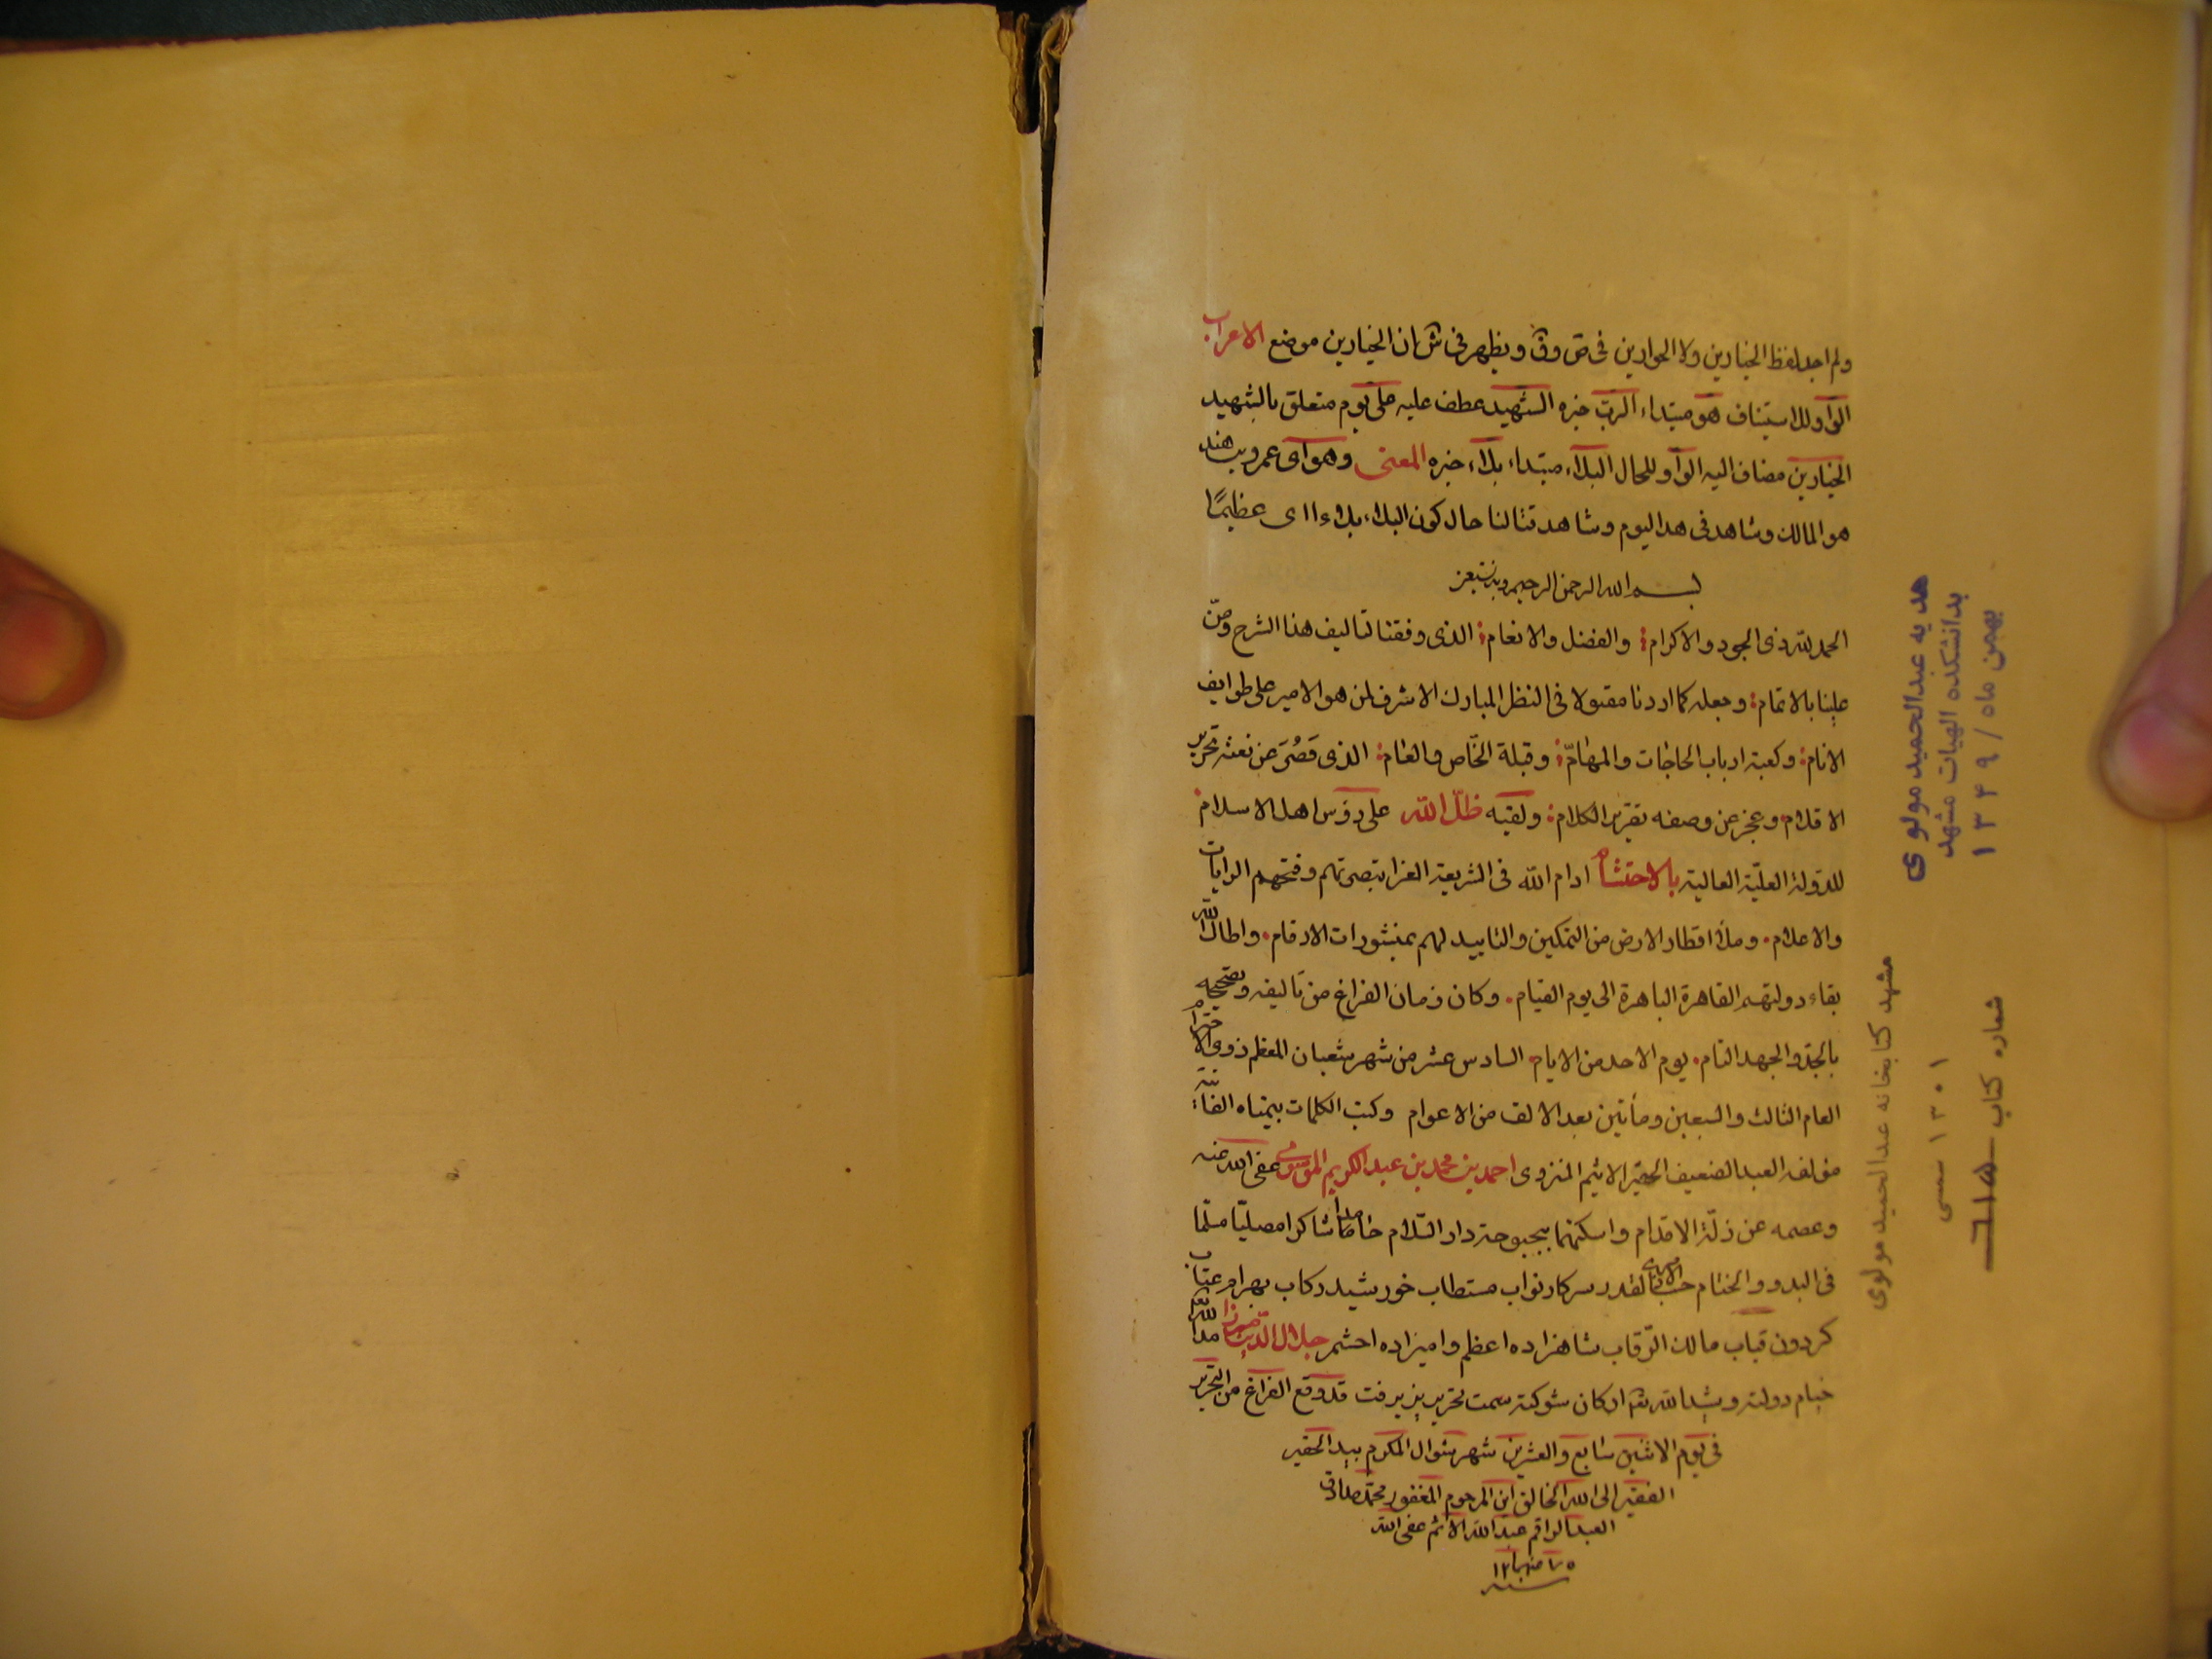 ولم اجد لفظ الخيارين ولا الحوارين فى ص وق ويظهر فى ش ان الخيارين موضع الاعراب
الواو للاستيناف هو مبتداء الرب خبره الشهيد عطف عليه على يوم متعلق بالشهيد
الخيارين مضاف اليه الواو للحال البلاء مبتداء بلاء خبره المعنى وهو اى عمرو بن هند
هو المالك وشاهد فى هذا اليوم وشاهد قتالنا حال كون البلاء بلاءا اى عظيمًا
بسم الله الرحمن الرحيم وبه نستعين
الحمد لله ذى الجود والاكرام والفضل والانعام الذى وفقنا لتاليف هذا الشرح ومنّ
علينا بالاتمام وجعله كما اردنا مقبولا فى النظر المبارك الاشرف لمن هو الامير على طوايف
الانام وكعبة ارباب الحاجات والمهامّ وقبلة الخاص والعام الذى قصر عن نعته تحرير
الاقلام وعجز عن وصفه تقرير الكلام ولقبه ظلّ الله على رؤس اهل الاسلام
للدولة العليّة العالية بالاحتشام ادام الله فى الشريعة الغرا وفتحهم الرايات
والاعلام وملأ اقطار الارض من التمكين والتاييد لهم بمنشورات الارقام واطال الله
بقاء دولتهم القاهرة الباهرة الى يوم القيام وكان زمان الفراغ من تاليفه وتصحيحه
بالجدّ والجهد التام يوم الاحد من الايام السادس عشر من شهر شعبان المعظم ذوى الاحترام
العام الثالث والسبعين ومأتين بعد الالف من الاعوام وكتب الكلمات بيمناه
مؤلفه العبد الضعيف الحقير الاثيم المنزوى احمد بن محمد بن عبد الكريم الموسوى عفى الله عنه
وعصمه عن زلّة الاقدام واسكنهما بحبوحة دار السّلام حامدا شاكرا مصليّا مسلّما
فى البدو والختام حسب الامر القدر سركار نواب مستطاب خورشيد ركاب بهرام عتاب
كردون قباب مالك الرّقاب شاهزاده اعظم واميرزاده احشم جلال الدين ميرزا مدّ الله تعالى
خيام دولته وشيد الله اركان شوكته سمت تحرير پزيرفت قد وقع الفراغ من التحرير
فى يوم الاثنين سابع والعشرين شهر شوال المكرم بيد الحقير
الفقير الى الله الخالق ابن المرحوم المغفور محمّد صادق
العبد الراقم عبد الله الاثم عفى الله
هديه عبدالحميد مولوى
بدانشكده الهيات مشهد
بهمن ماه / ١٣٤٩
مشهد كتابخانه عبدالحميد مولوى
١٣٠١ شمسى
شماره كتاب ٦١٥